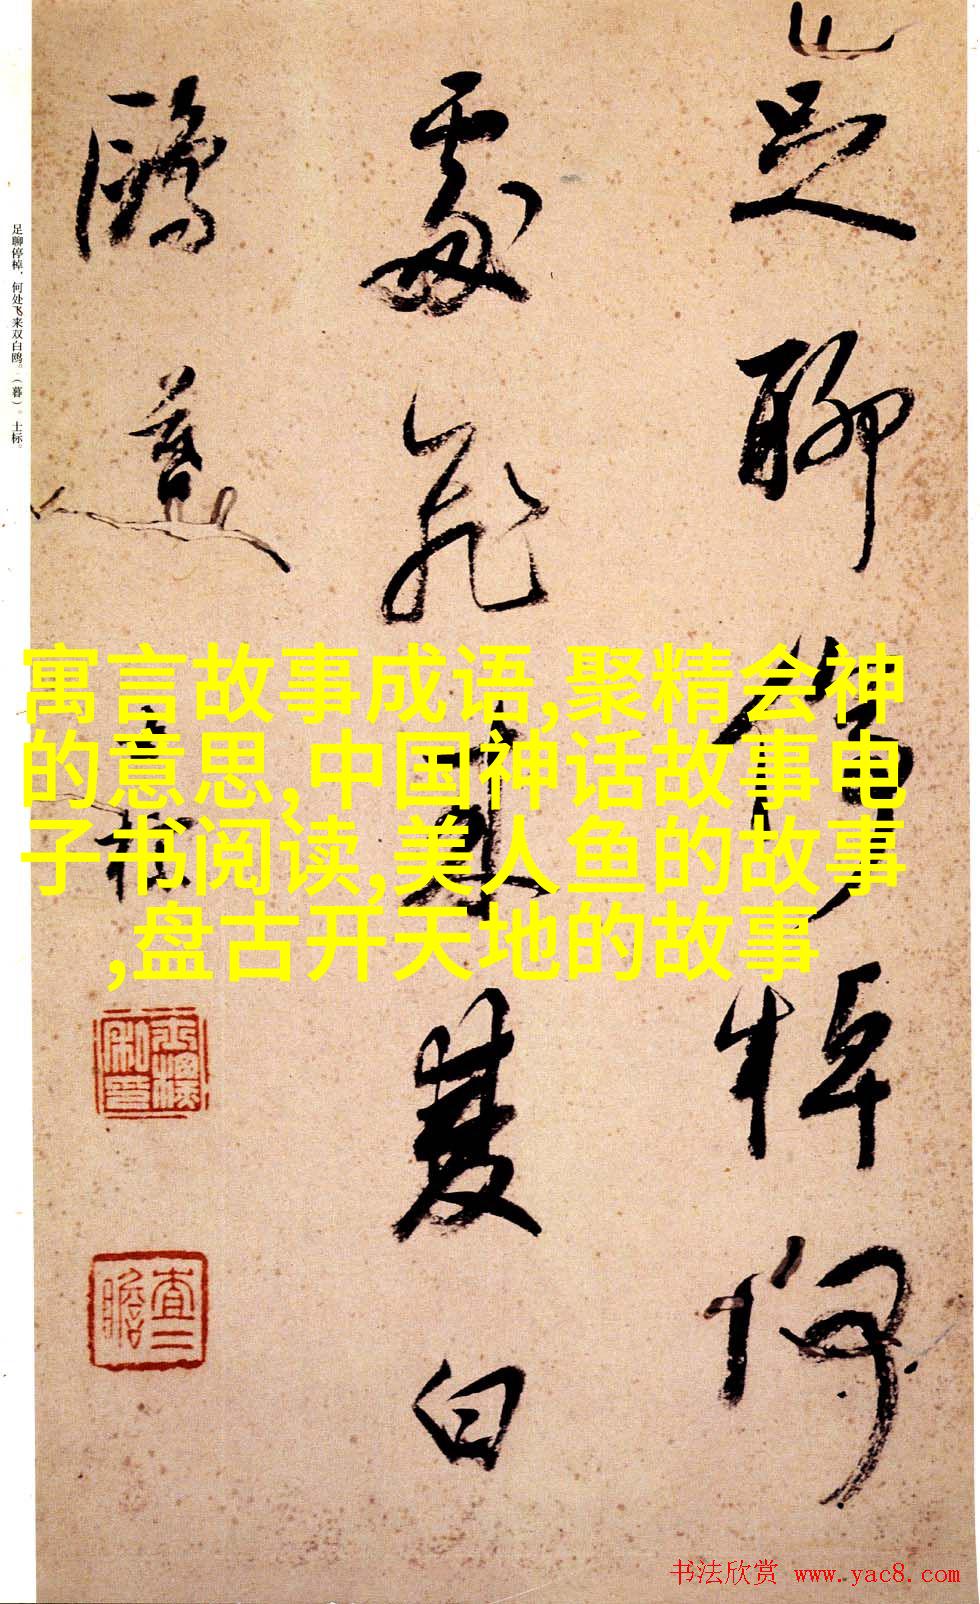 足聊停棹何
處飛来雙白
鷗 暮 士標
足聊停棹，何处飞来双白鸥。（暮）。士标。
寓言故事成语,聚精会神
的意思,中国神话故事电
子书阅读,美人鱼的故事
,盘古开天地的故事
查二
瞻
书法欣赏 www.yac8.com